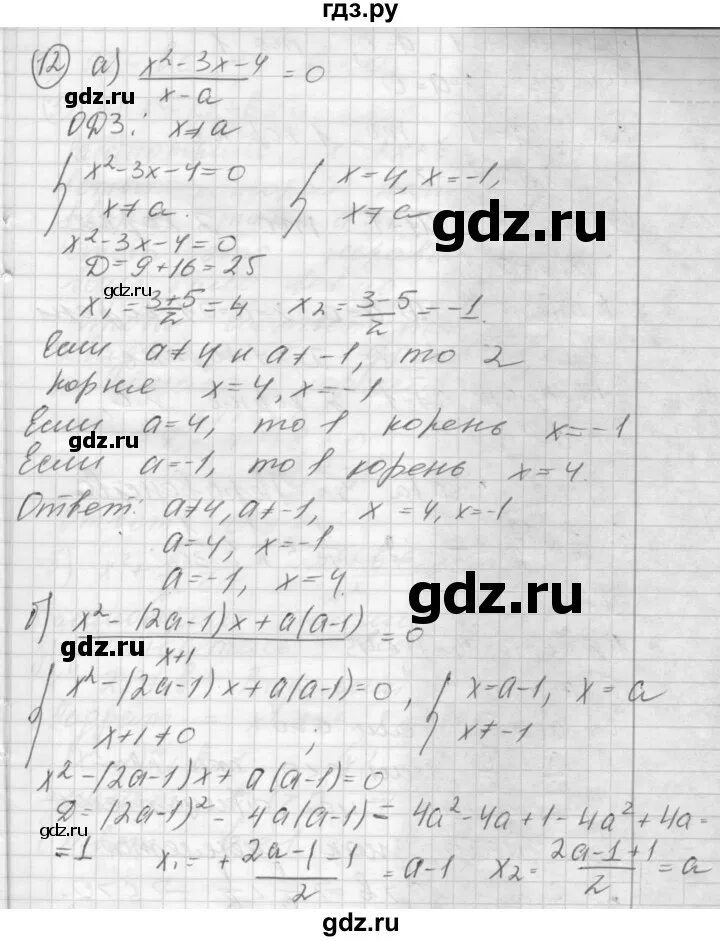 гдз.ру
12) а) x² - 3x - 4 / x - a = 0
gdz.ru
ОДЗ: x ≠ a
{ x² - 3x - 4 = 0 { x = 4, x = -1,
gdz.ru
x ≠ a. x ≠ a
gdz.ru
x² - 3x - 4 = 0
D = 9 + 16 = 25
gdz.ru
x₁ = 3+5 / 2 = 4 x₂ = 3-5 / 2 = -1.
Если a ≠ 4 и a ≠ -1, то 2
корня x = 4, x = -1
Если a = 4, то 1 корень x = -1
gdz.ru
Если a = -1, то 1 корень x = 4.
Ответ: a ≠ 4, a ≠ -1, x = 4, x = -1
gdz.ru
a = 4, x = -1
a = -1, x = 4.
gdz.ru
б) x² - (2a-1)x + a(a-1) / x+1 = 0
gdz.ru
{ x² - (2a-1)x + a(a-1) = 0, { x = a-1, x = a
x + 1 ≠ 0 ; x ≠ -1
gdz.ru
x² - (2a-1)x + a(a-1) = 0
D = (2a-1)² - 4a(a-1) = 4a² - 4a + 1 - 4a² + 4a =
gdz.ru
= 1 x₁ = + 2a-1-1 / 2 = a-1 x₂ = 2a-1+1 / 2 = a
gdz.ru
gdz.ru